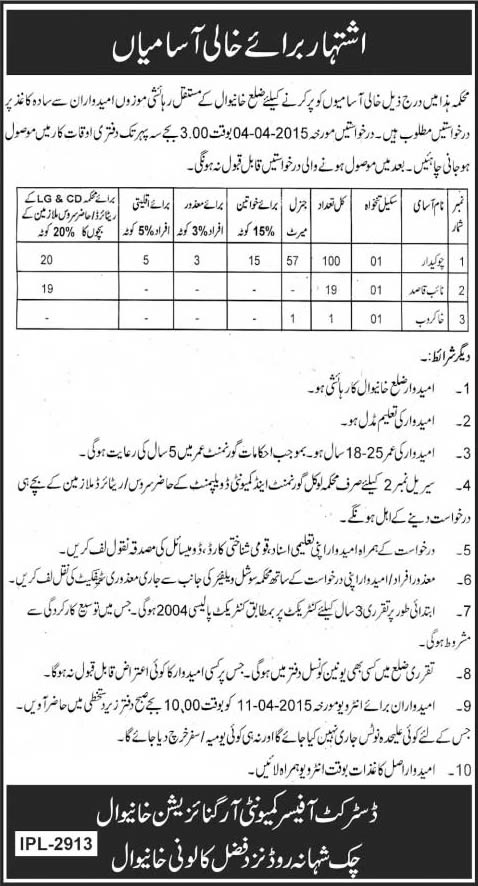 اشتہار برائے خالی آسامیاں
محکمہ ہذا میں درج ذیل خالی آسامیوں کو پر کرنے کیلئے ضلع خانیوال کے مستقل رہائشی موزوں امیدواران سے سادہ کاغذ پر
درخواستیں مطلوب ہیں۔ درخواستیں مورخہ 2015-04-04 بوقت 3.00 بجے سہ پہر تک دفتری اوقات کار میں موصول
ہو جانی چاہئیں۔ بعد میں موصول ہونے والی درخواستیں قابل قبول نہ ہونگی۔
نمبر شمار | نام آسامی | سکیل تنخواہ | کل تعداد | جنرل میرٹ | برائے خواتین 15% کوٹہ | برائے معذور افراد 3% کوٹہ | برائے اقلیتی افراد 5% کوٹہ | برائے محکمہ LG & CD کے ریٹائرڈ/حاضر سروس ملازمین کے بچوں کا 20% کوٹہ
1 | چوکیدار | 01 | 100 | 57 | 15 | 3 | 5 | 20
2 | نائب قاصد | 01 | 19 | - | - | - | - | 19
3 | خاکروب | 01 | 1 | 1 | - | - | - | -
دیگر شرائط:۔
1۔ امیدوار ضلع خانیوال کا رہائشی ہو۔
2۔ امیدوار کی تعلیم مڈل ہو۔
3۔ امیدوار کی عمر 25-18 سال ہو۔ بموجب احکامات گورنمنٹ عمر میں 5 سال کی رعایت ہوگی۔
4۔ سیریل نمبر 2 کیلئے صرف محکمہ لوکل گورنمنٹ اینڈ کمیونٹی ڈویلپمنٹ کے حاضر سروس/ریٹائرڈ ملازمین کے بچے ہی
درخواست دینے کے اہل ہونگے۔
5۔ درخواست کے ہمراہ امیدوار اپنی تعلیمی اسناد، قومی شناختی کارڈ، ڈومیسائل کی مصدقہ نقول لف کریں۔
6۔ معذور افراد/امیدوار اپنی درخواست کے ساتھ محکمہ سوشل ویلفیئر کی جانب سے جاری معذوری سٹیفکیٹ کی نقل لف کریں۔
7۔ ابتدائی طور پر تقرری 3 سال کیلئے کنٹریکٹ پر بمطابق کنٹریکٹ پالیسی 2004 ہوگی۔ جس میں توسیع کارکردگی سے
مشروط ہوگی۔
8۔ تقرری ضلع میں کسی بھی یونین کونسل دفتر میں ہوگی۔ جس پر کسی امیدوار کا کوئی اعتراض قابل قبول نہ ہوگا۔
9۔ امیدواران برائے انٹرویو مورخہ 2015-04-11 کو بوقت 10,00 بجے صبح دفتر زیر دستخطی میں حاضر آویں۔
جس کے لئے کوئی علیحدہ نوٹس جاری نہیں کیا جائے گا اور نہ ہی کوئی یومیہ/سفر خرچ دیا جائے گا۔
10۔ امیدوار اصل کاغذات بوقت انٹرویو ہمراہ لائیں۔
ڈسٹرکٹ آفیسر کمیونٹی آرگنائزیشن خانیوال
چک شہانہ روڈ نزد فضل کالونی خانیوال
IPL-2913